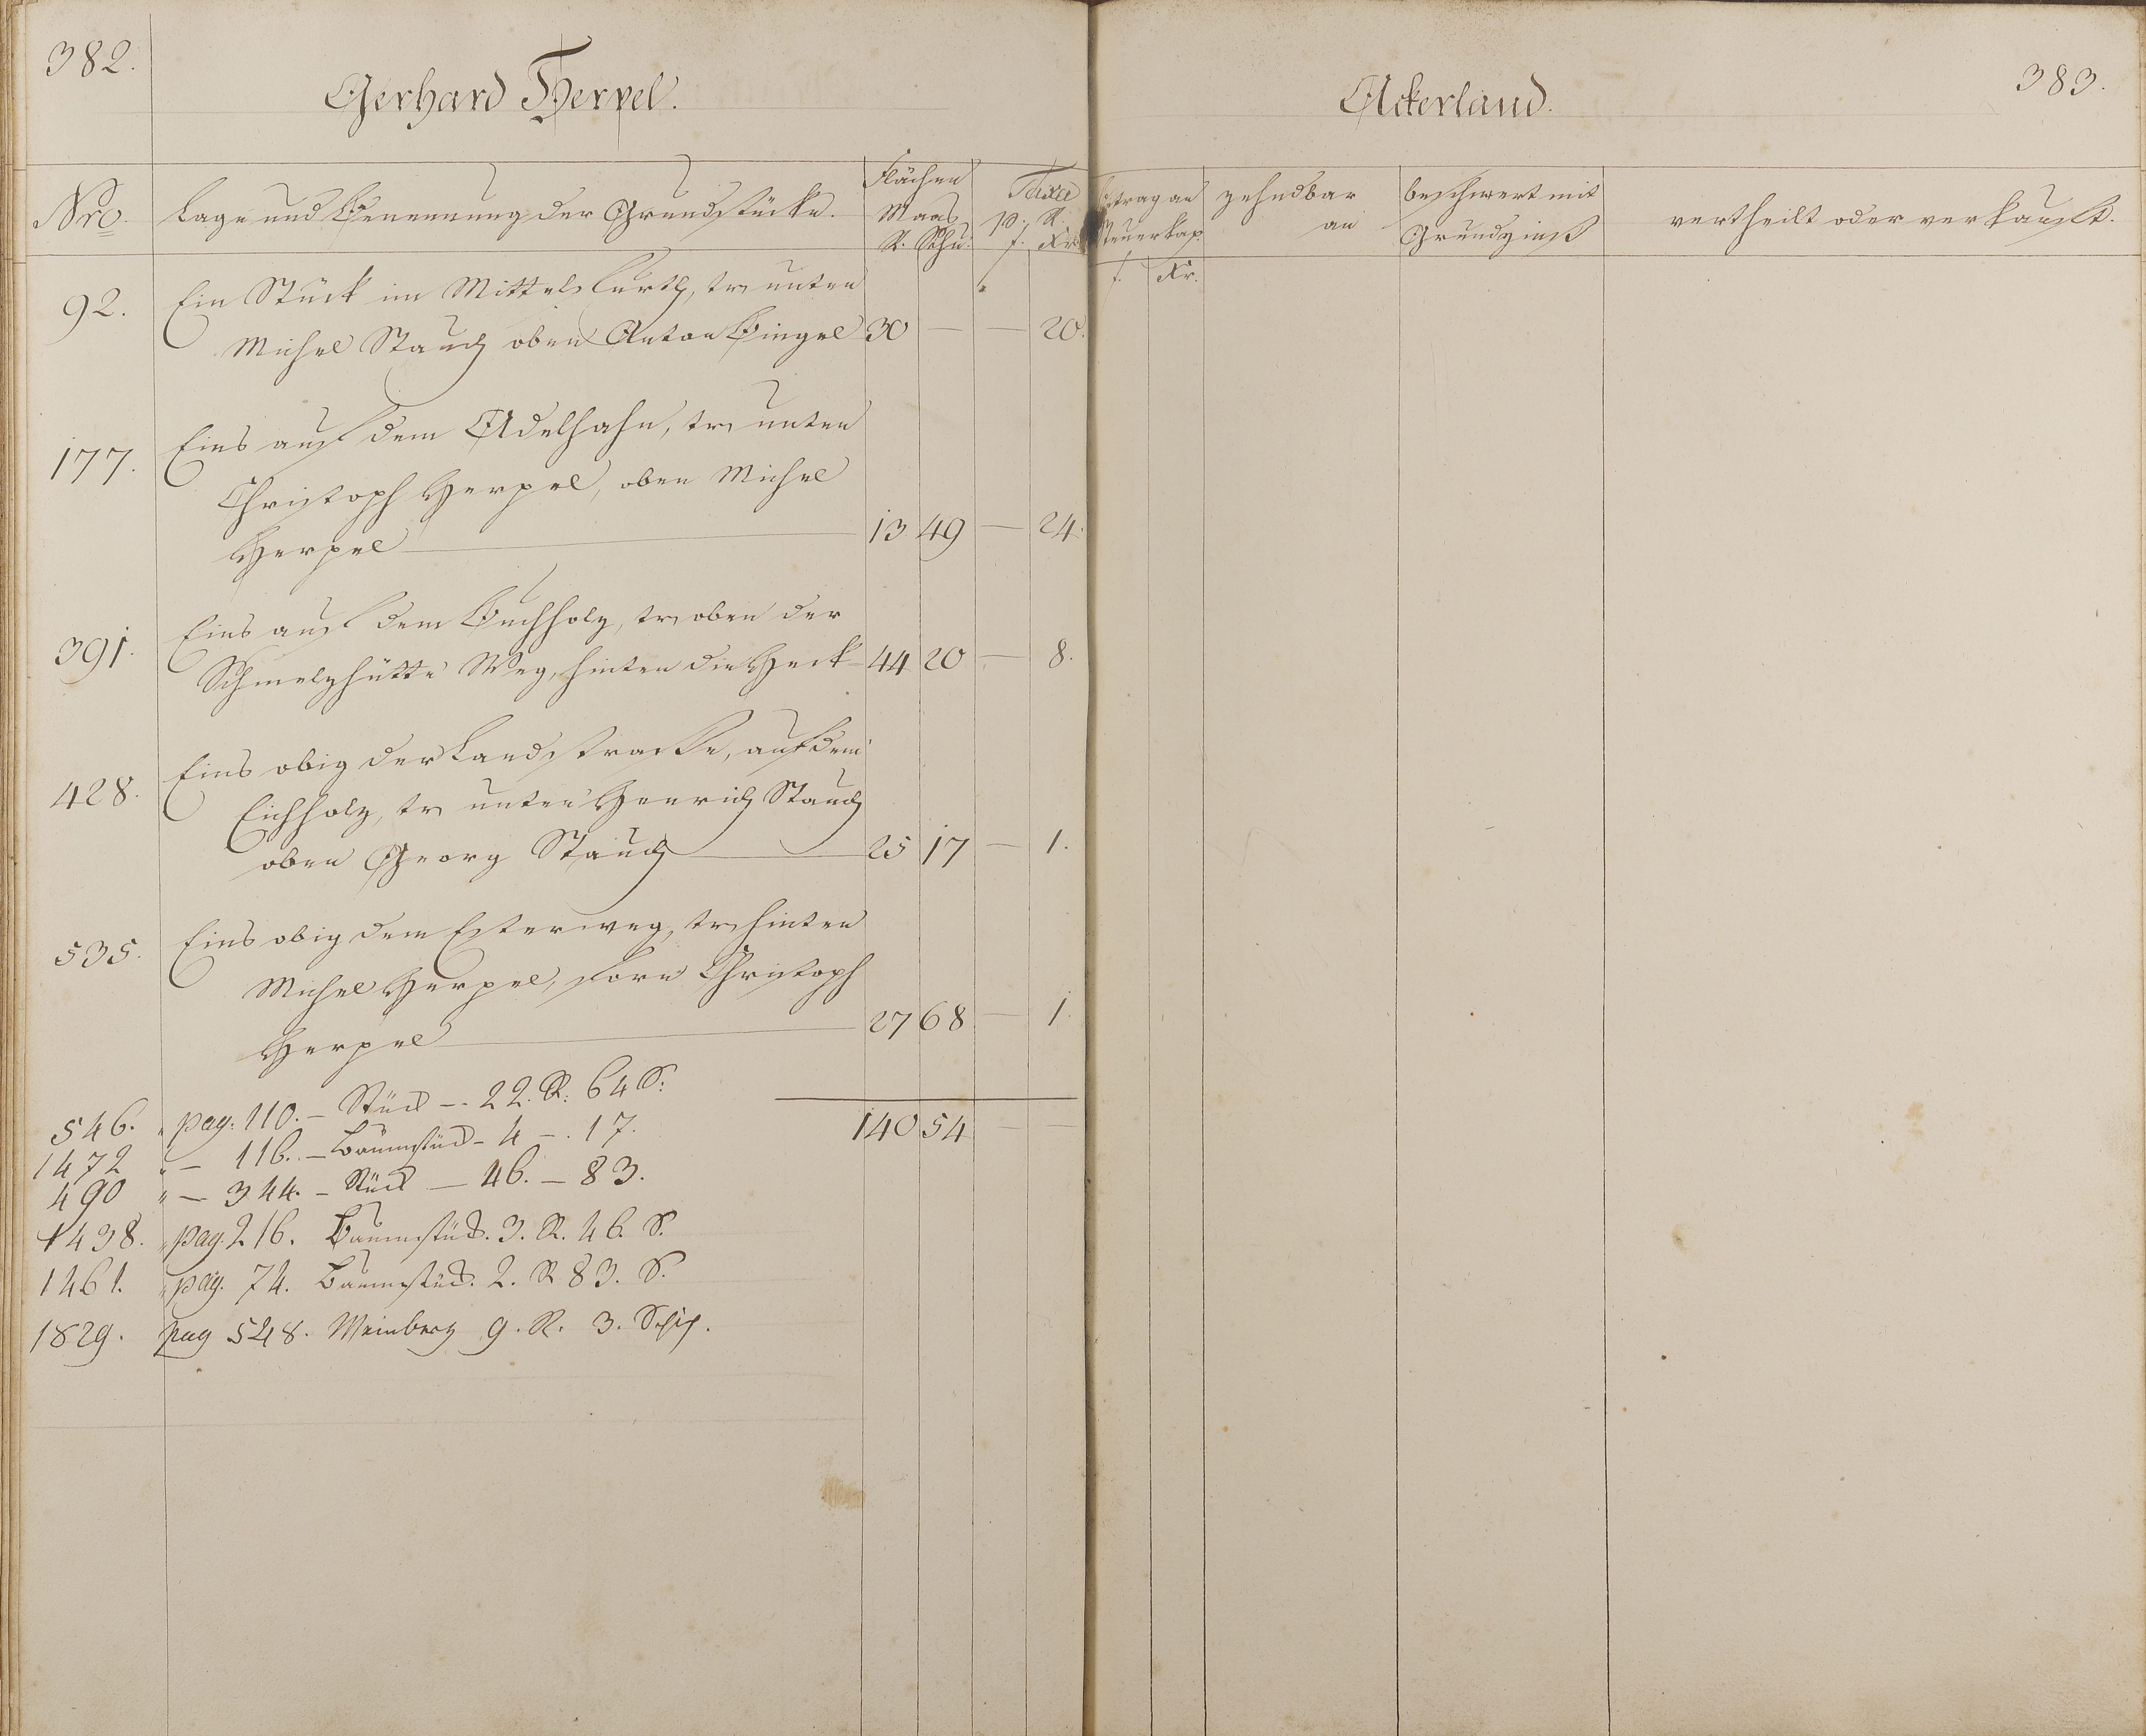 382.
Gerhard Herpel.
Nro.
Lage und Benennung der Grundstücke.
Flächen
Maas
R. Schu.
Taxa
p. R.
f. Kr.
92. Ein Stück im Mittels, tr unten
Michel Stauch oben Anton Bingel 30 — — 20.
177. Eins auf dem Adelhahn, tr unten
Christoph Herpel, oben Michel
Herpel 13 49 — 24.
391. Eins auf dem Buchholz, tr oben der
Schmelzhütte Weg, hinten die Heck 44 20 — 8.
428. Eins obig der Landstrasse, auf dem
Eichholz, tr unten Henrich Stauch
oben Georg Stauch 25 17 — 1.
535. Eins obig dem Esterweg, tr hinten
Michel Herpel, forn Christoph
Herpel 27 68 — 1.
140 54 — —
546. " pag: 110. — Stück — 22. R: 64 S:
1472 " — 116. — Baumstück — 4 — . 17.
490 " — 344. — Stück — 46. — 83.
1438. " pag. 216. Baumstück. 3. R. 46. S.
1461. " pag. 74. Baumstück. 2. R 83. S.
1829. pag 548. Weinberg 9. R. 3. Sch.
383.
Ackerland.
trag an
Steuerkap.
f. Kr.
zehndbar
an
beschwert mit
Grundzinß
vertheilt oder verkauft.